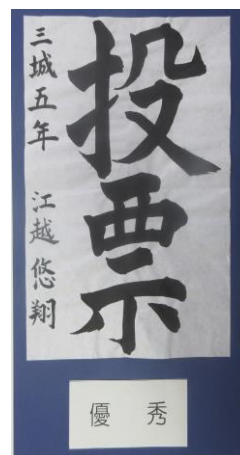 投票
三城五年 江越悠翔
優秀